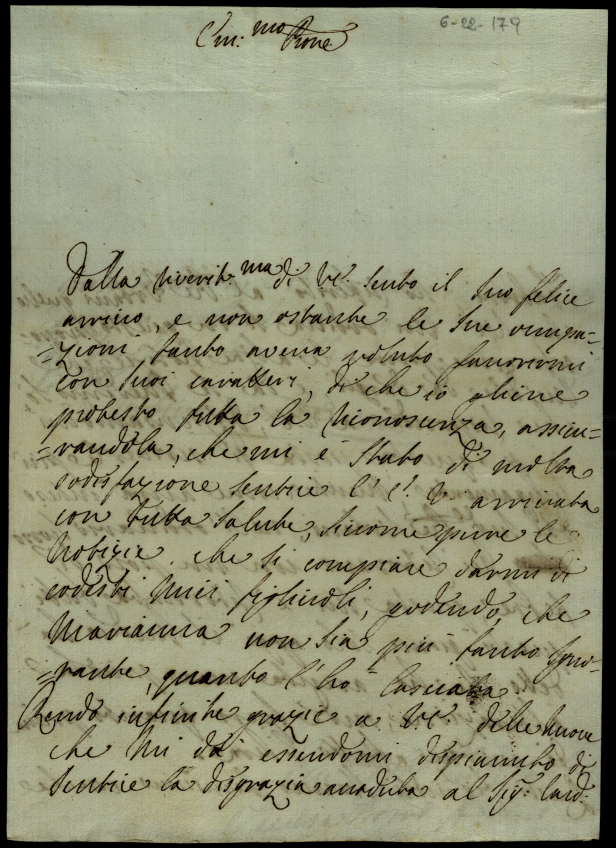 6-22-179
Em:mo Prone
Dalla riverit:ma di V.E. sento il suo felice
arrivo, e non ostante le sue occupa-
=zioni tanto aveva voluto favorirmi
con suoi caratteri, di che io gliene
protesto tutta la riconoscenza, assicu-
=randola, che mi è stato di molta
sodisfazione sentire l'E. V. arrivata
con tutta salute, siccome pure le
notizie che si compiace darmi di
codesti miei figliuoli, godendo, che
Marianna non sia più tanto igno-
=rante, quanto l'hò lasciata.
Rendo infinite grazie a V.E. delle nuove
che mi dà essendomi dispiaciuto di
sentire la disgrazia accaduta al Sig: Card: